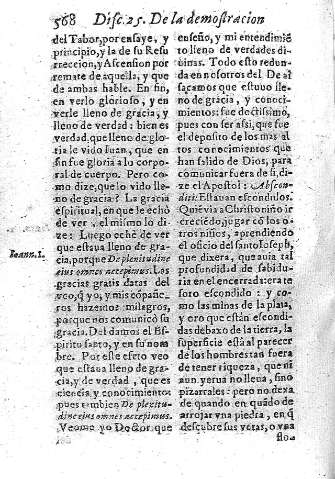 568 Disc. 25. De la demostracion
del Tabor, por ensaye, y
principio, y la de su Resu
rreccion, y Ascension por
remate de aquella, y que
de ambas hable. En fin,
en verlo glorioso, y en
verle lleno de gracia, y
lleno de verdad: bien es
verdad, que lleno de glo-
ria le vido Iuan, que en
fin fue gloria a lo corpo-
ral de cuerpo. Pero co-
mo dize, que lo vido lle-
no de gracia? La gracia
espiritual, en que le echò
de ver, el mismo lo di
ze: Luego eché de ver
que estaua lleno de gra-
cia, porque De plenitudine
eius omnes accepimus. Los
gracias gratis datas del
veo, q̃ yo, y mis cõpañe-
ros hazemos milagros,
porque nos comunicò su
gracia. Del damos el Es-
piritu santo, y en su nom
bre. Por este efeto veo
que estaua lleno de gra-
cia, y de verdad, que es
ciencia, y conocimiento,
pues tambien De plenitu-
dine eius omnes accepimus.
Veome yo Doctor que
Ioann. 1.
enseño, y mi entendimiẽ
to lleno de verdades di-
uinas. Todo esto redun-
da en nosotros del De al
sacamos que estuuo lle-
no de gracia, y conoci-
mientos: fue dectissimo,
pues con ser assi, que fue
el deposito de los mas al
tos conocimientos que
han salido de Dios, para
comunicar fuera de si, di-
ze el Apostol: Abscon-
diti. Estauan escondidos.
Quiẽ via a Christo niño ir
creciẽdo, jugar cõ los o-
tros niños, aprendiendo
el oficio del santo Ioseph,
que dixera, que auia tal
profundidad de sabidu-
ria en el encerrada: era te
soro escondido: y co-
mo las minas de la plata,
y oro que estàn escondi-
das debaxo de la tierra, la
superficie està al parecer
de los hombres tan fuera
de tener riqueza, que ni
aun yerua no lleua, sino
pizarrales: pero no dexa
de quando en quãdo de
arrojar vna piedra, en q̃
descubre sus vetas, o vna
flo-